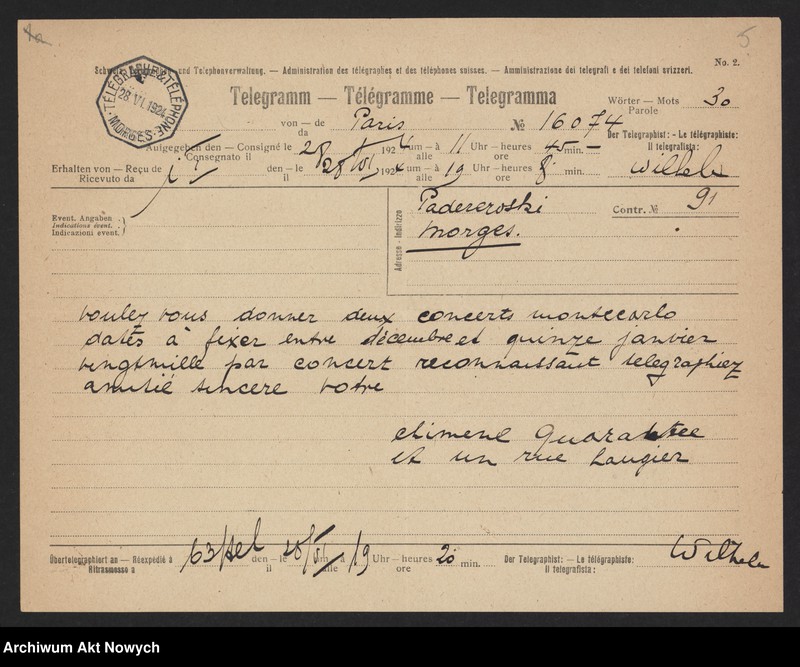 5
No. 2.
Schweiz. und Telephonverwaltung. — Administration des télégraphes et des téléphones suisses. — Amministrazione dei telegrafi e dei telefoni svizzeri.
TÉLÉGRAPHE & TÉLÉPHONE
28 VI. 1924
MORGES
Telegramm — Télégramme — Telegramma
Wörter — Mots 30
Parole
von — de Paris № 16074
da
Der Telegraphist: - Le télégraphiste:
Il telegrafista:
Aufgegeben den — Consigné le 28/ 192 um — à 11 Uhr — heures 45 min. —
Consegnato il alle ore
Erhalten von — Reçu de den — le 28/VI 1924 um — à 19 Uhr — heures 8 min.
Ricevuto da il alle ore
Event. Angaben
Indications évent.
Indicazioni event.
Adresse - Indirizzo
Padereroski
Morges.
Contr. № 91
voulez vous donner deux concerts montecarlo
dates à fixer entre décembre et quinze janvier
vingtmille par concert reconnaissant telegraphiez
amitié sincere votre
et un rue Laugier
Übertelegraphiert an — Réexpédié à 63 tel den — le um — à 19 Uhr — heures 20 min.
Ritrasmesso a il alle ore
Der Telegraphist: — Le télégraphiste:
Il telegrafista:
Archiwum Akt Nowych